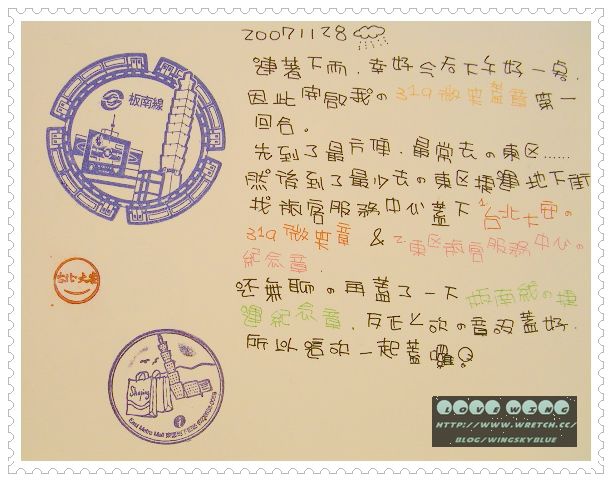 20071128
連著下雨．幸好今天下午好一點．
因此開啟我の319微笑蓋章第一
回合．
先到了最方便．最常去の東区......
然後到了最少去の東区捷運地下街
找旅客服務中心蓋下1.台北大安の
319微笑章 & 2.東区旅客服務中心の
紀念章．
还無聊の再蓋了一下板南線の捷
運紀念章．反正上次の章没蓋好．
所以這次一起蓋囉
板南線
台北大安
Shopping
East Metro Mall
LOVE WING
HTTP://WWW.WRETCH.CC/
BLOG/WINGSKYBLUE